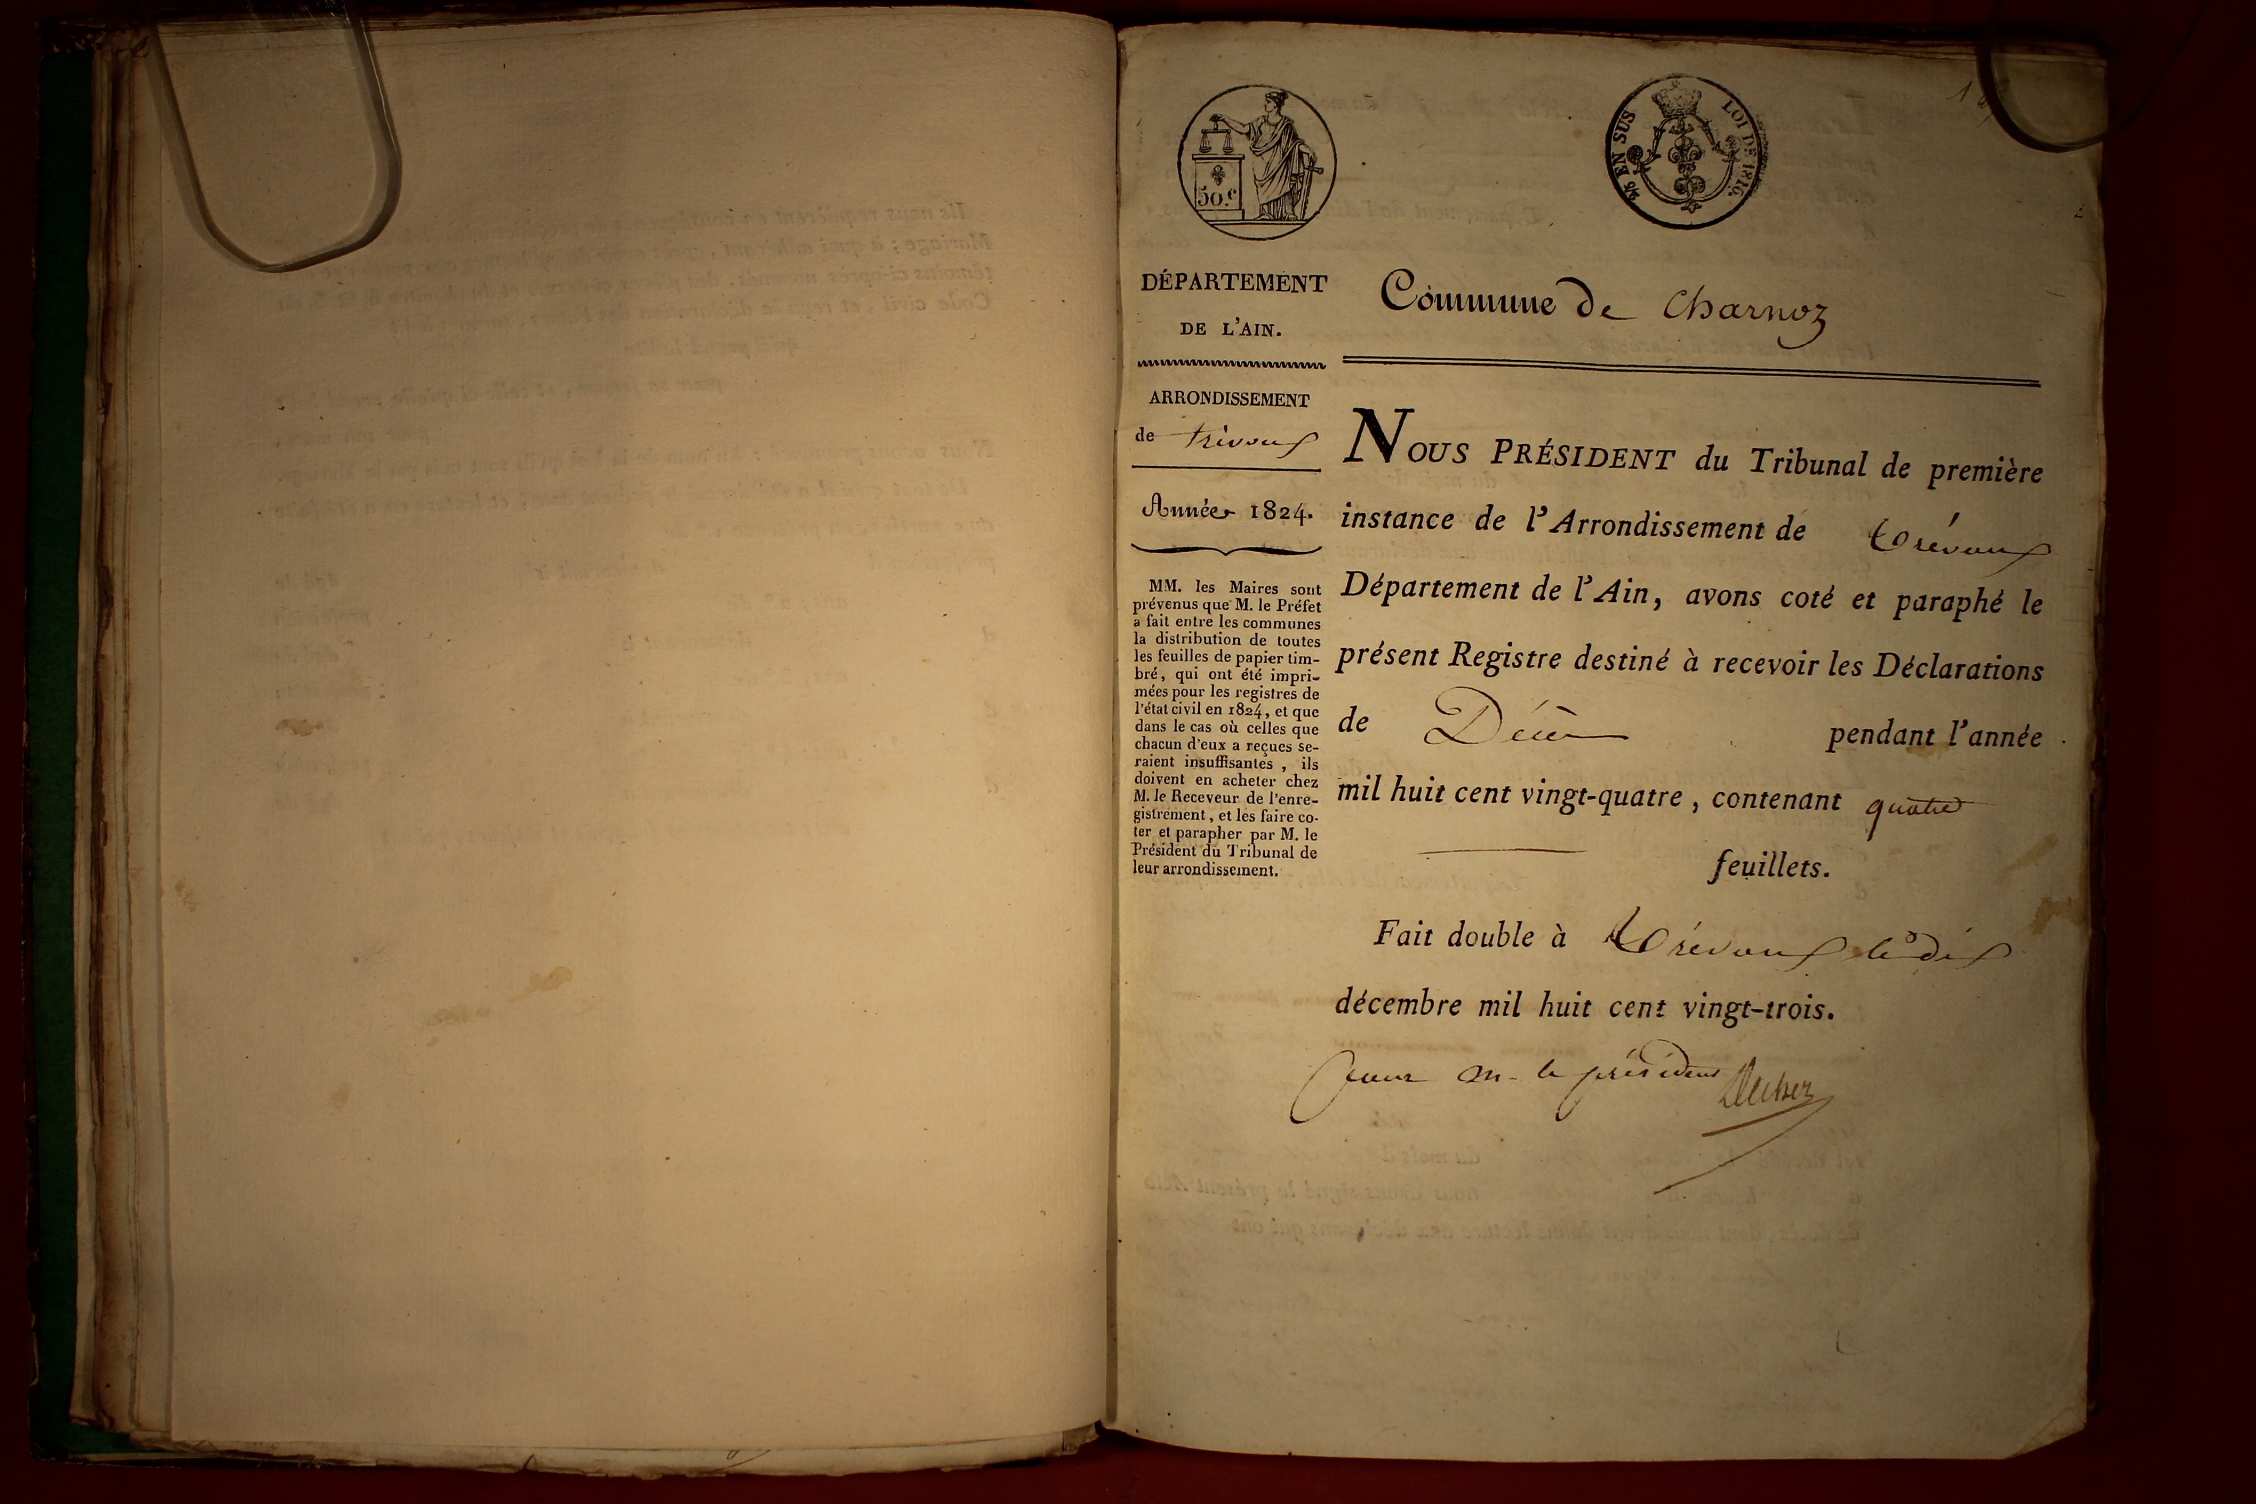 50.c
2/5 EN SUS
LOI DE 1816.
DÉPARTEMENT
DE L'AIN.
ARRONDISSEMENT
de trévoux
Année 1824.
MM. les Maires sont
prévenus que M. le Préfet
a fait entre les communes
la distribution de toutes
les feuilles de papier tim-
bré, qui ont été impri-
mées pour les registres de
l'état civil en 1824, et que
dans le cas où celles que
chacun d'eux a reçues se-
raient insuffisantes, ils
doivent en acheter chez
M. le Receveur de l'enre-
gistrement, et les faire co-
ter et parapher par M. le
Président du Tribunal de
leur arrondissement.
Commune de Charnoz
NOUS PRÉSIDENT du Tribunal de première
instance de l'Arrondissement de trévoux
Département de l'Ain, avons coté et paraphé le
présent Registre destiné à recevoir les Déclarations
de Décès pendant l'année
mil huit cent vingt-quatre, contenant quatre
feuillets.
Fait double à trévoux le dix
décembre mil huit cent vingt-trois.
pour M. le président